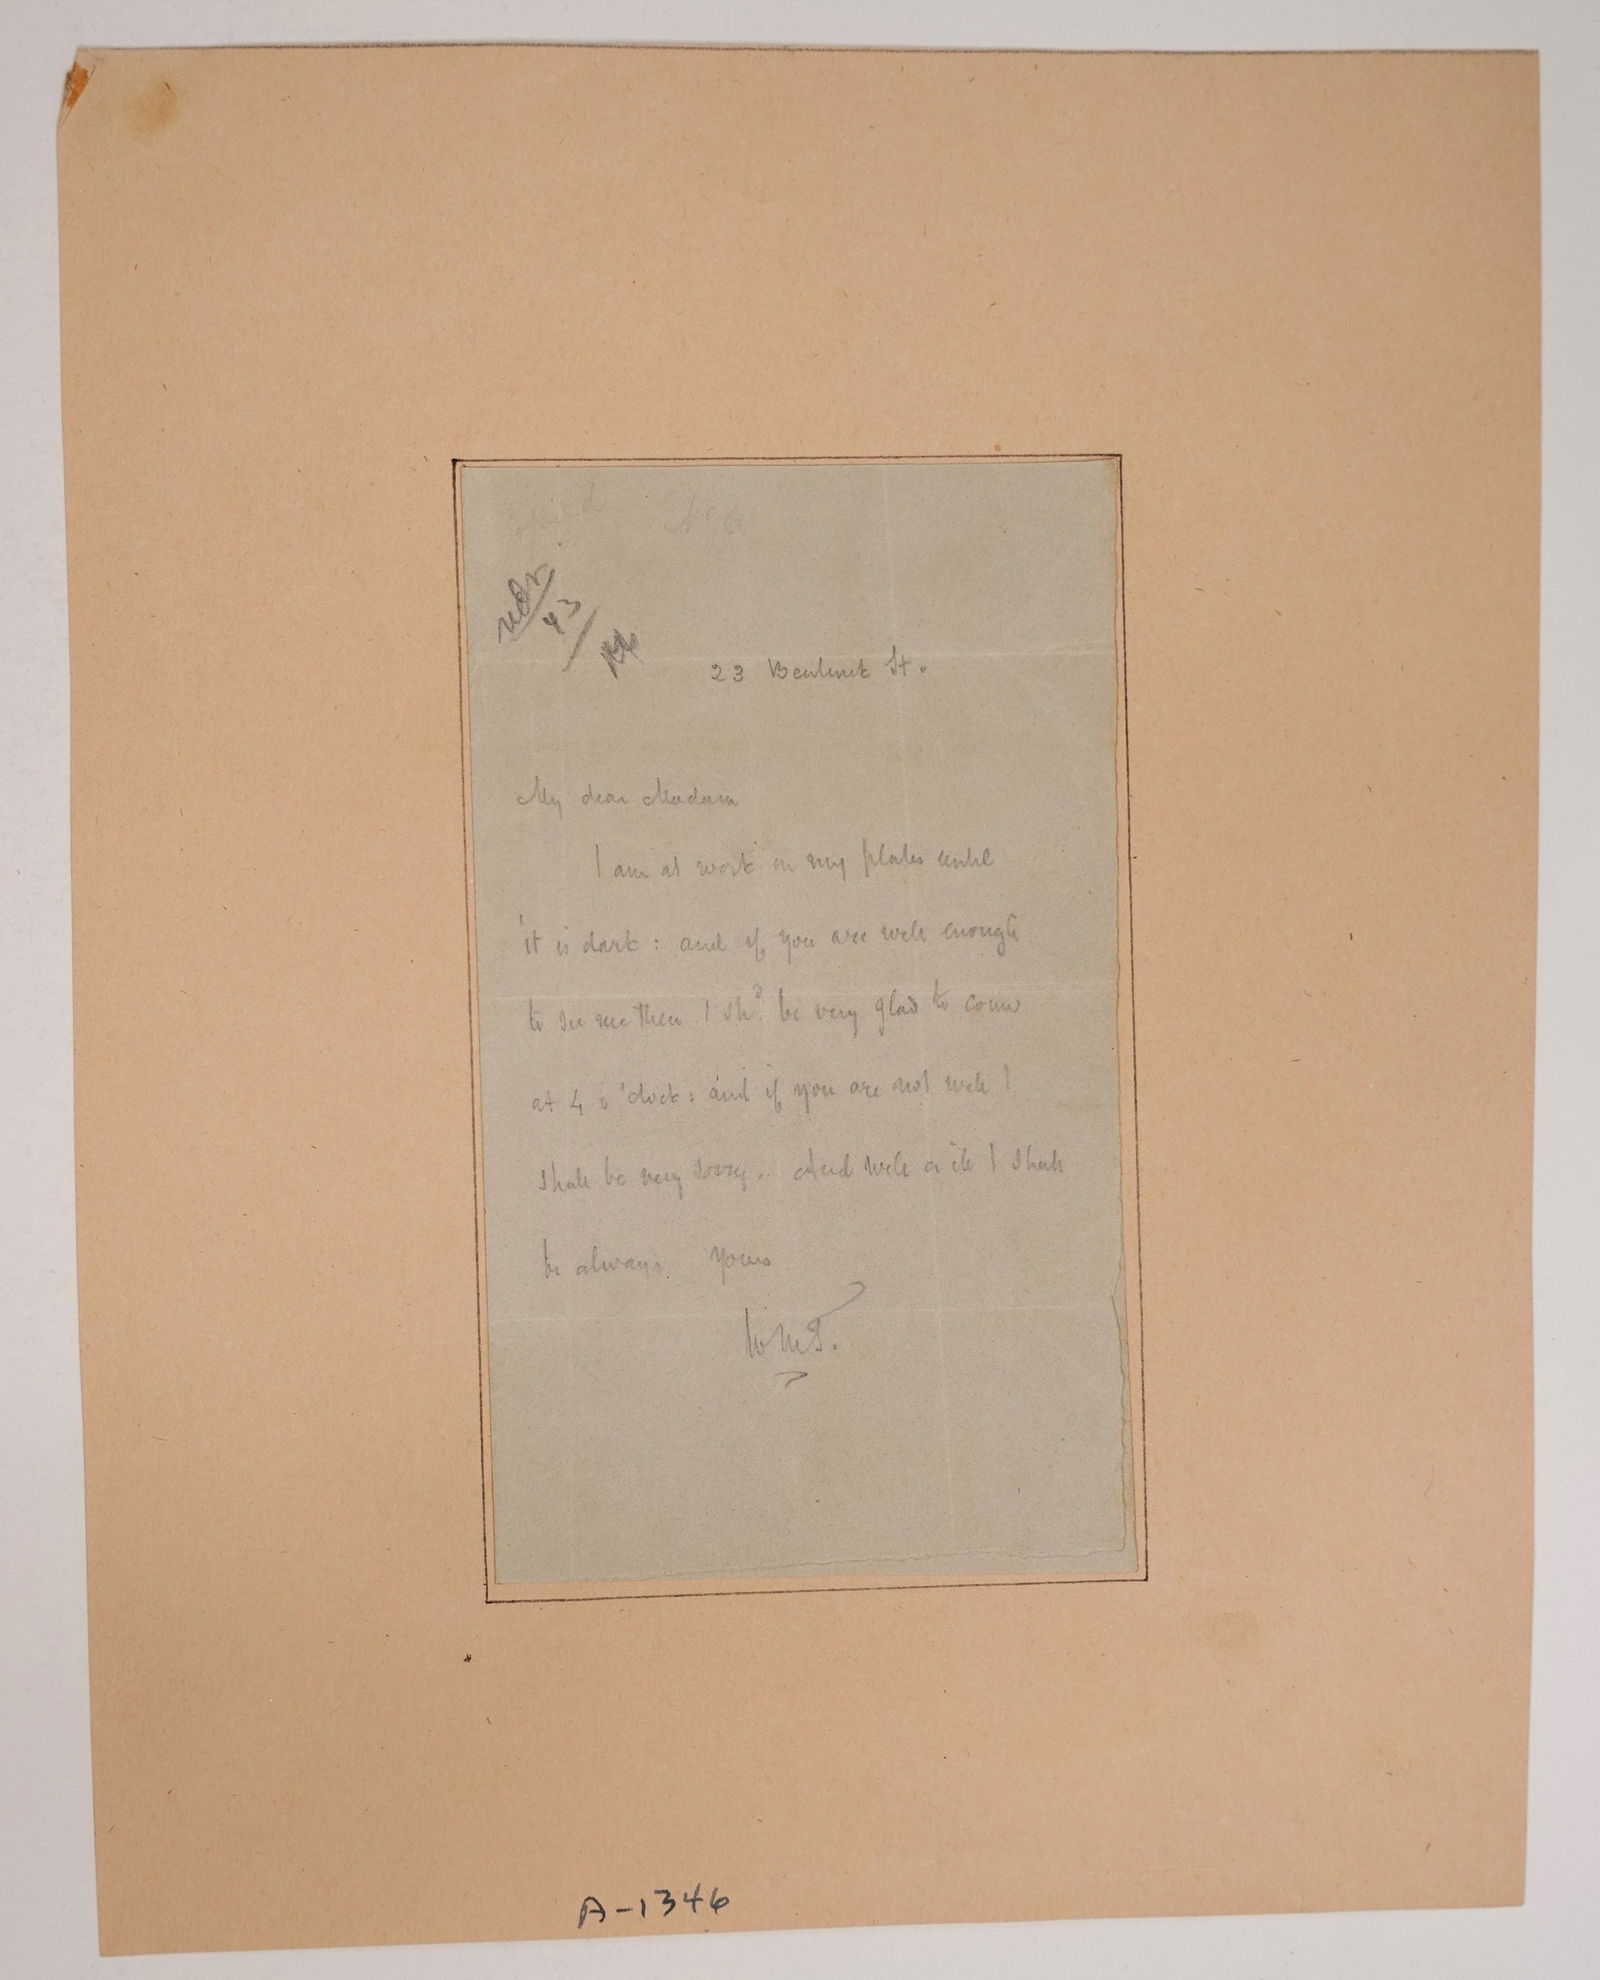 Copied No 6
23 Bentinck St.
My dear Madam
I am at work on my plates until
it is dark : and if you are well enough
to see me then I shd. be very glad to come
at 4 o'clock : and if you are not well I
shall be very sorry.. And well or ill I shall
be always yours
WMT.
A-1346